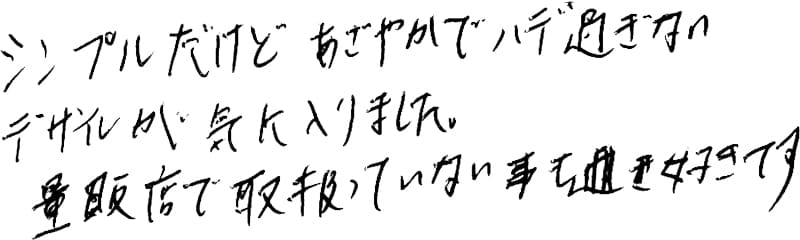 シンプルだけど あざやかでハデ過ぎない
デザインが気に入りました。
量販店で取扱っていない事も 好きです